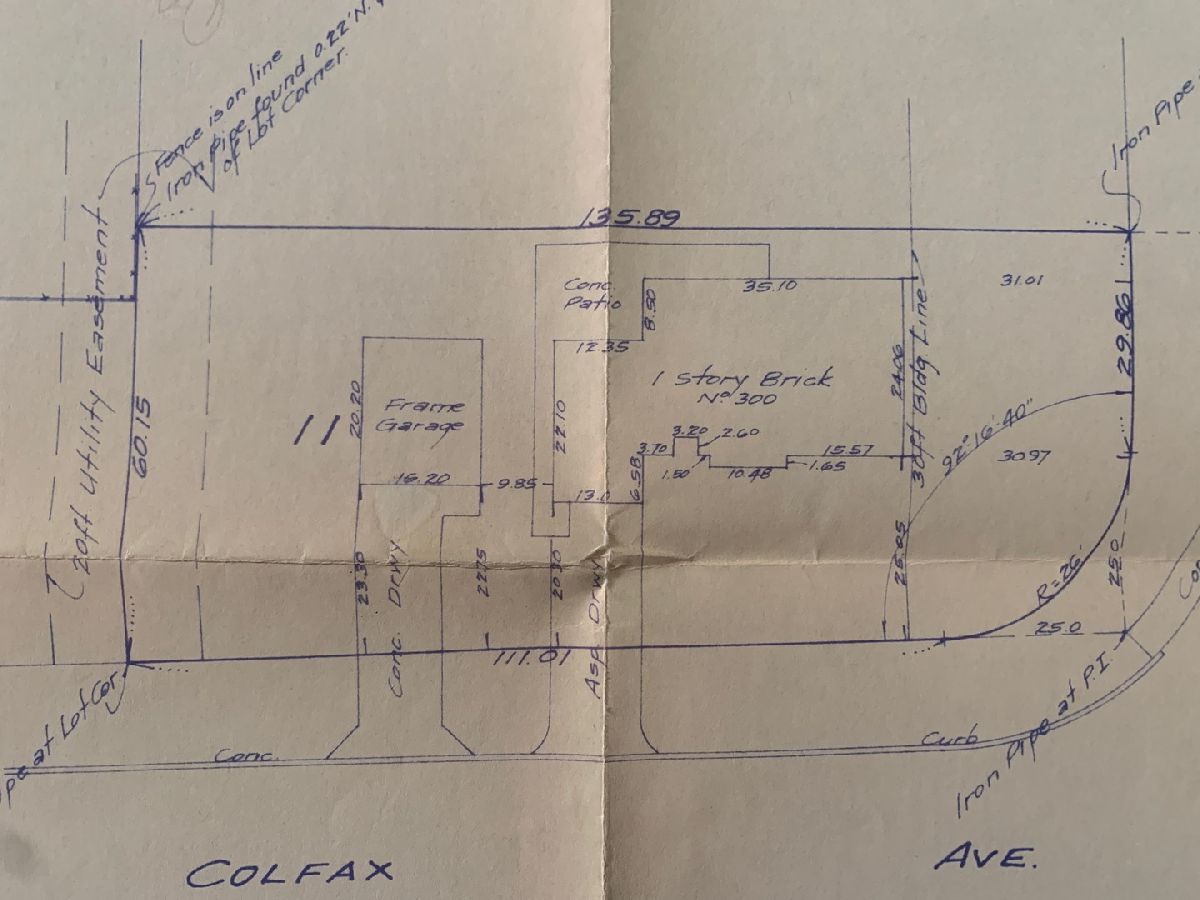 Fence is on line
Iron Pipe found 0.22' N.
of Lot Corner.
Iron Pipe
135.89
20ft Utility Easement
60.15
11
Conc.
Patio
8.50
35.10
31.01
29.86
12.35
1 Story Brick
Nº 300
24.06
30ft Bldg Line
20.20
Frame
Garage
22.10
3.20
2.60
3.70
1.50
10.48
15.57
1.65
92°-16'-40"
30.97
15.20
9.85
13.0
6.58
23.30
Conc. Drwy
22.75
20.30
Asp. Drwy
25.05
R=26'
25.0
25.0
111.01
pe at Lot Cor.
Iron Pipe at P.I.
Conc.
Curb
COLFAX AVE.